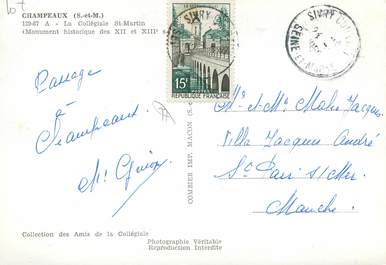 CHAMPEAUX (S.-et-M.)
129-67 A - La Collégiale St-Martin
(Monument historique des XII et XIIIe s
15F
REPUBLIQUE FRANÇAISE
SIVRY
SIVRY
SEINE ET MARNE
Passage
à
Champeaux
COMBIER IMP. MACON (S.-
Mr et Mme Jacques
Villa Jacques André
St Pair s/Mer
Manche
Collection des Amis de la Collégiale
Photographie Véritable
Reproduction Interdite